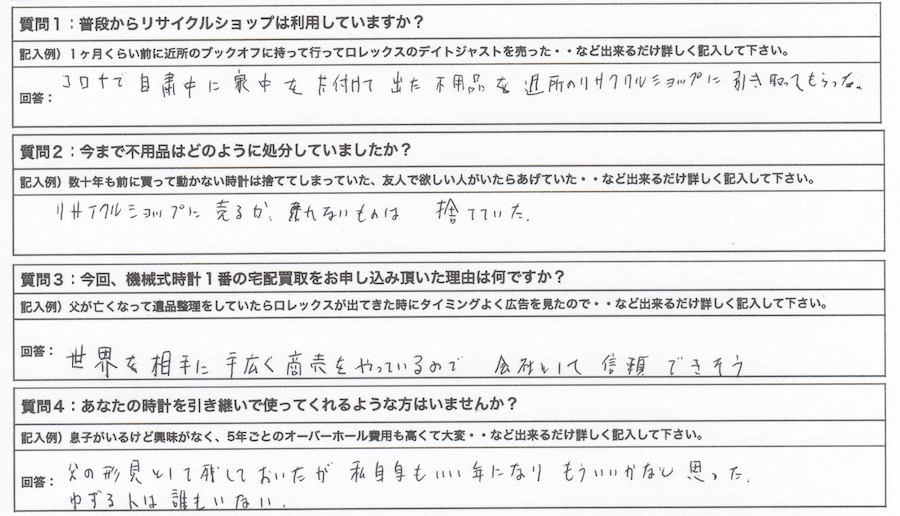 質問1：普段からリサイクルショップは利用していますか？
記入例）1ヶ月くらい前に近所のブックオフに持って行ってロレックスのデイトジャストを売った・・など出来るだけ詳しく記入して下さい。
回答： コロナで自粛中に家中を片付けて出た不用品を近所のリサイクルショップに引き取ってもらった。
質問2：今まで不用品はどのように処分していましたか？
記入例）数十年も前に買って動かない時計は捨ててしまっていた、友人で欲しい人がいたらあげていた・・など出来るだけ詳しく記入して下さい。
リサイクルショップに売るか、売れないものは 捨てていた。
質問3：今回、機械式時計1番の宅配買取をお申し込み頂いた理由は何ですか？
記入例）父が亡くなって遺品整理をしていたらロレックスが出てきた時にタイミングよく広告を見たので・・など出来るだけ詳しく記入して下さい。
回答： 世界を相手に手広く商売をやっているので 会社として信頼できそう
質問4：あなたの時計を引き継いで使ってくれるような方はいませんか？
記入例）息子がいるけど興味がなく、5年ごとのオーバーホール費用も高くて大変・・など出来るだけ詳しく記入して下さい。
回答： 父の形見として残しておいたが 私自身もいい年になり もういいかなと思った。
ゆずる人は誰もいない。